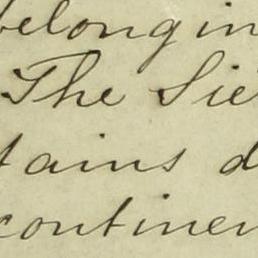 belongin
The Sie
tains d
continen